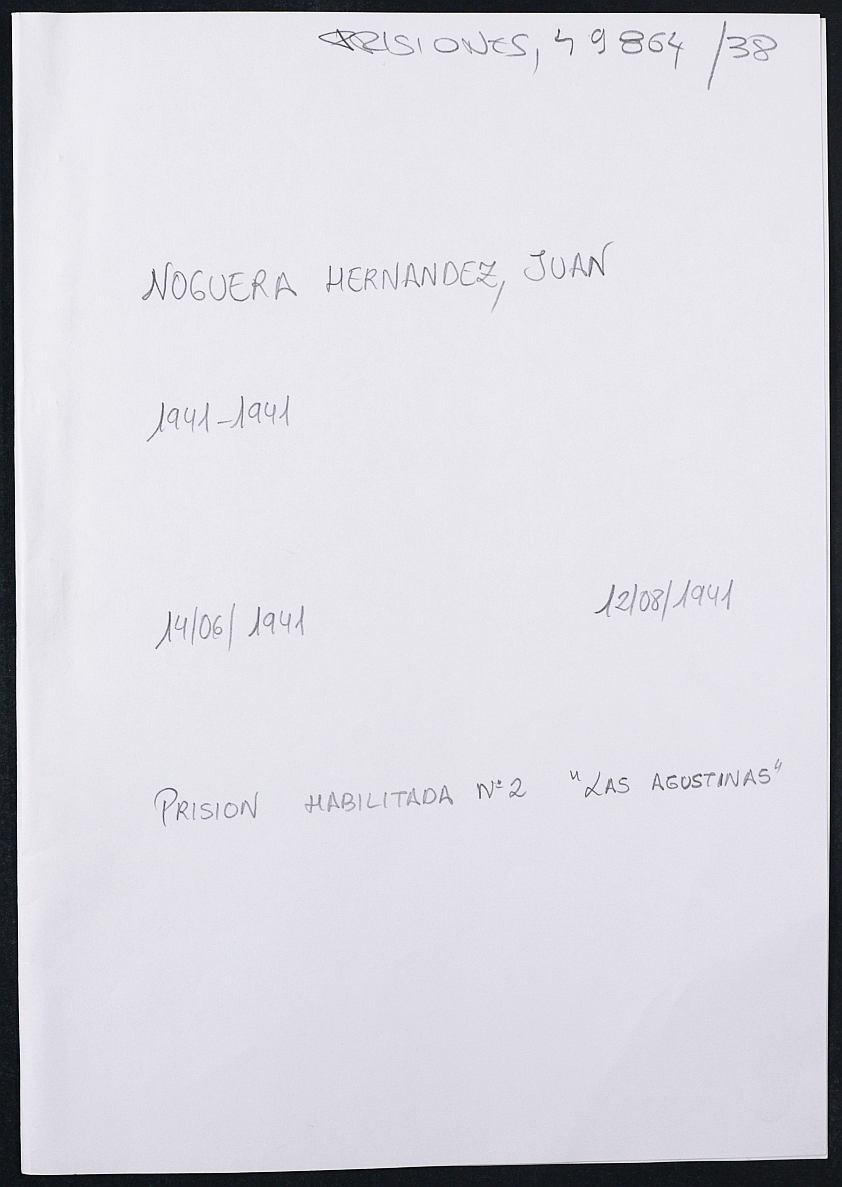 PRISIONES, 49864 /38
NOGUERA HERNANDEZ, JUAN
1941-1941
14/06/1941 12/08/1941
PRISION HABILITADA Nº 2 "LAS AGUSTINAS"